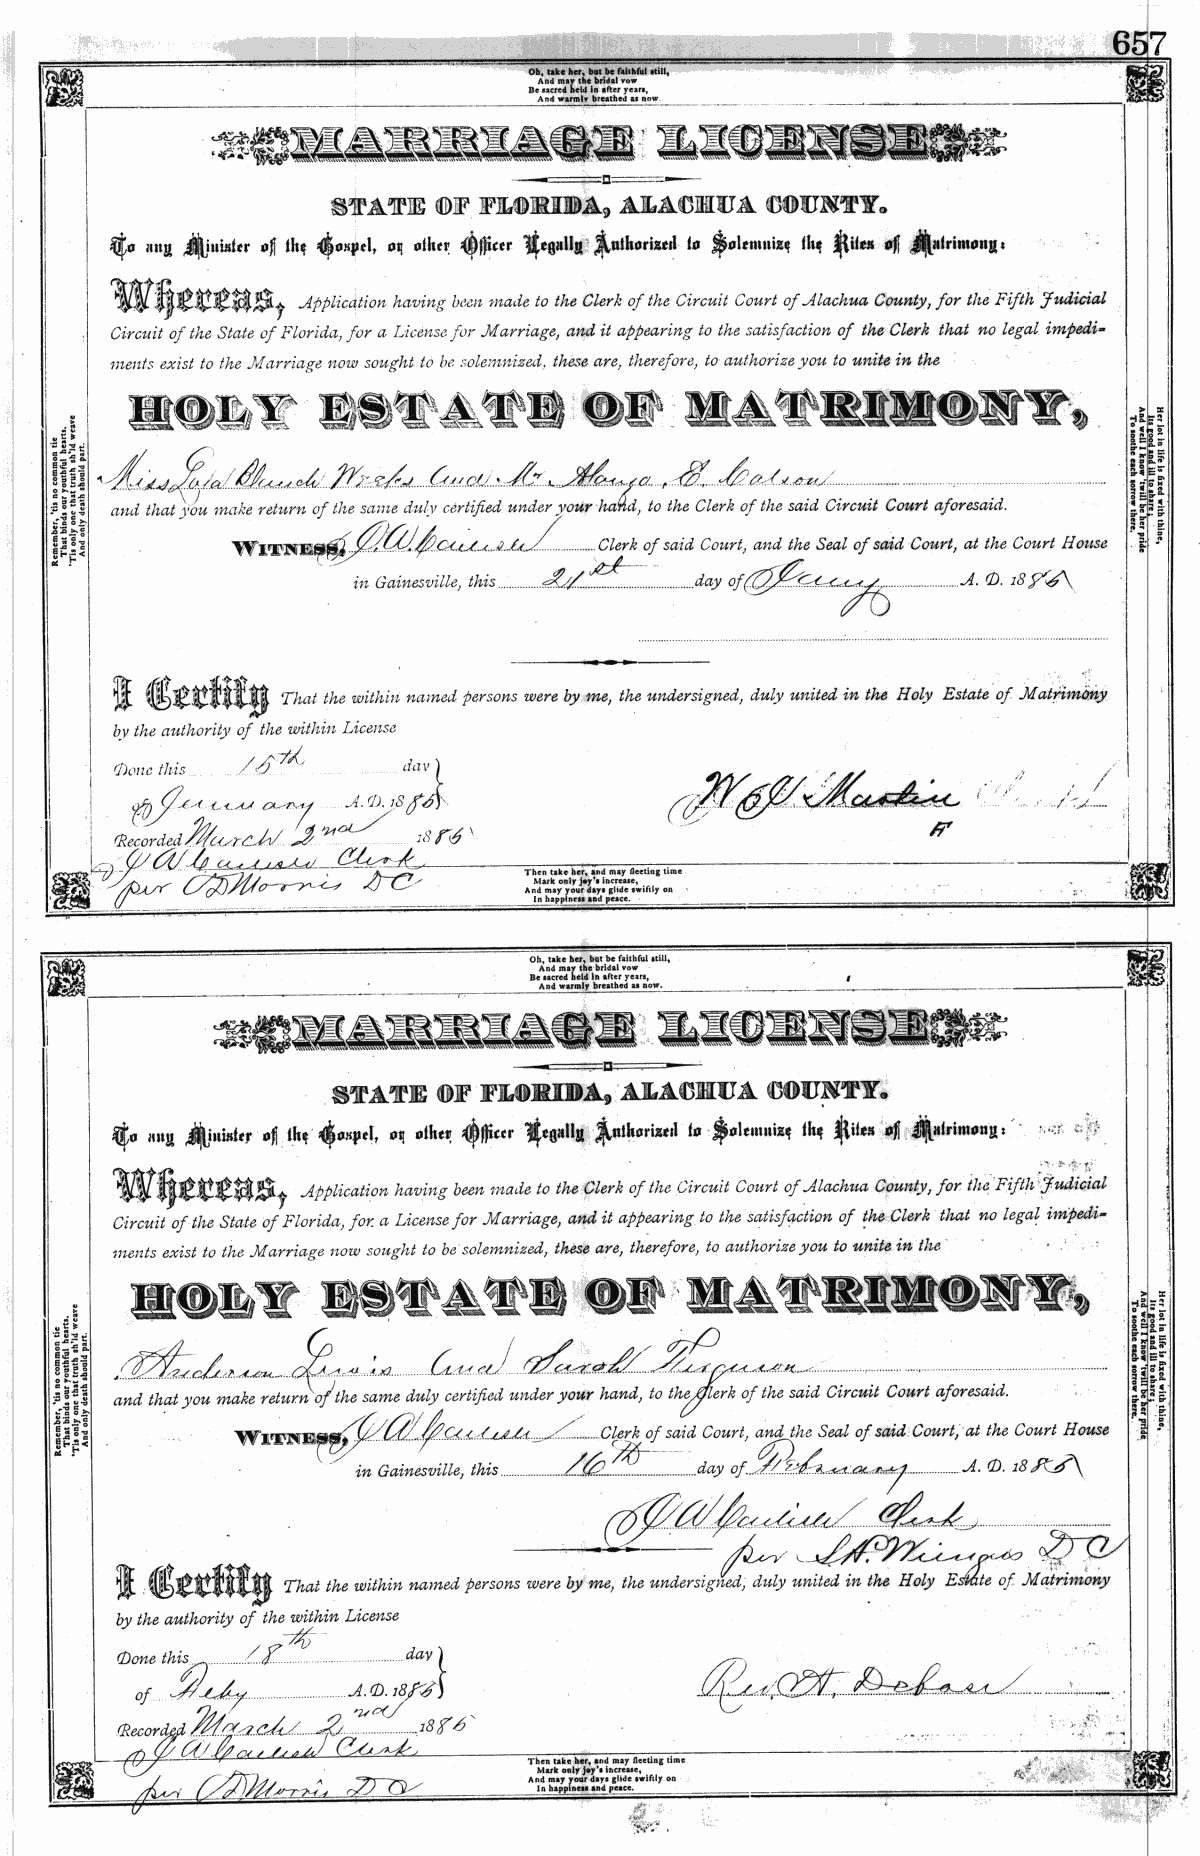 657
Oh, take her, but be faithful still,
And may the bridal vow
Be sacred held in after years,
And warmly breathed as now.
MARRIAGE LICENSE
STATE OF FLORIDA, ALACHUA COUNTY.
To any Minister of the Gospel, or other Officer Legally Authorized to Solemnize the Rites of Matrimony:
Whereas, Application having been made to the Clerk of the Circuit Court of Alachua County, for the Fifth Judicial
Circuit of the State of Florida, for a License for Marriage, and it appearing to the satisfaction of the Clerk that no legal impedi-
ments exist to the Marriage now sought to be solemnized, these are, therefore, to authorize you to unite in the
HOLY ESTATE OF MATRIMONY,
Remember, 'tis no common tie
That binds our youthful hearts,
'Tis only one that truth sh'ld weave
And only death should part.
Her lot in life is fixed with thine,
Its good and ill to share;
And well I know 'twill be her pride
To soothe each sorrow there.
Miss Blanch Weeks and Mr Alonzo E. Colson
and that you make return of the same duly certified under your hand, to the Clerk of the said Circuit Court aforesaid.
WITNESS, J. A. Carlisle Clerk of said Court, and the Seal of said Court, at the Court House
in Gainesville, this 21st day of Jany A. D. 1885
I Certify That the within named persons were by me, the undersigned, duly united in the Holy Estate of Matrimony
by the authority of the within License
Done this 15th day
of January A. D. 1885
W J Martin
Recorded March 2nd 1885
J A Carlisle Clerk
per Morris D C
Then take her, and may fleeting time
Mark only joy's increase,
And may your days glide swiftly on
In happiness and peace.
Oh, take her, but be faithful still,
And may the bridal vow
Be sacred held in after years,
And warmly breathed as now.
MARRIAGE LICENSE
STATE OF FLORIDA, ALACHUA COUNTY.
To any Minister of the Gospel, or other Officer Legally Authorized to Solemnize the Rites of Matrimony:
Whereas, Application having been made to the Clerk of the Circuit Court of Alachua County, for the Fifth Judicial
Circuit of the State of Florida, for a License for Marriage, and it appearing to the satisfaction of the Clerk that no legal impedi-
ments exist to the Marriage now sought to be solemnized, these are, therefore, to authorize you to unite in the
HOLY ESTATE OF MATRIMONY,
Remember, 'tis no common tie
That binds our youthful hearts,
'Tis only one that truth sh'ld weave
And only death should part.
Her lot in life is fixed with thine,
Its good and ill to share;
And well I know 'twill be her pride
To soothe each sorrow there.
Anderson Lewis and Sarah Ferguson
and that you make return of the same duly certified under your hand, to the Clerk of the said Circuit Court aforesaid.
WITNESS, J A Carlisle Clerk of said Court, and the Seal of said Court, at the Court House
in Gainesville, this 16th day of February A. D. 1885
J A Carlisle Clerk
per S. H. Wienges D C
I Certify That the within named persons were by me, the undersigned, duly united in the Holy Estate of Matrimony
by the authority of the within License
Done this 18th day
of Feby A. D. 1885
Rev. A. Debose
Recorded March 2nd 1885
J A Carlisle Clerk
per Morris D C
Then take her, and may fleeting time
Mark only joy's increase,
And may your days glide swiftly on
In happiness and peace.